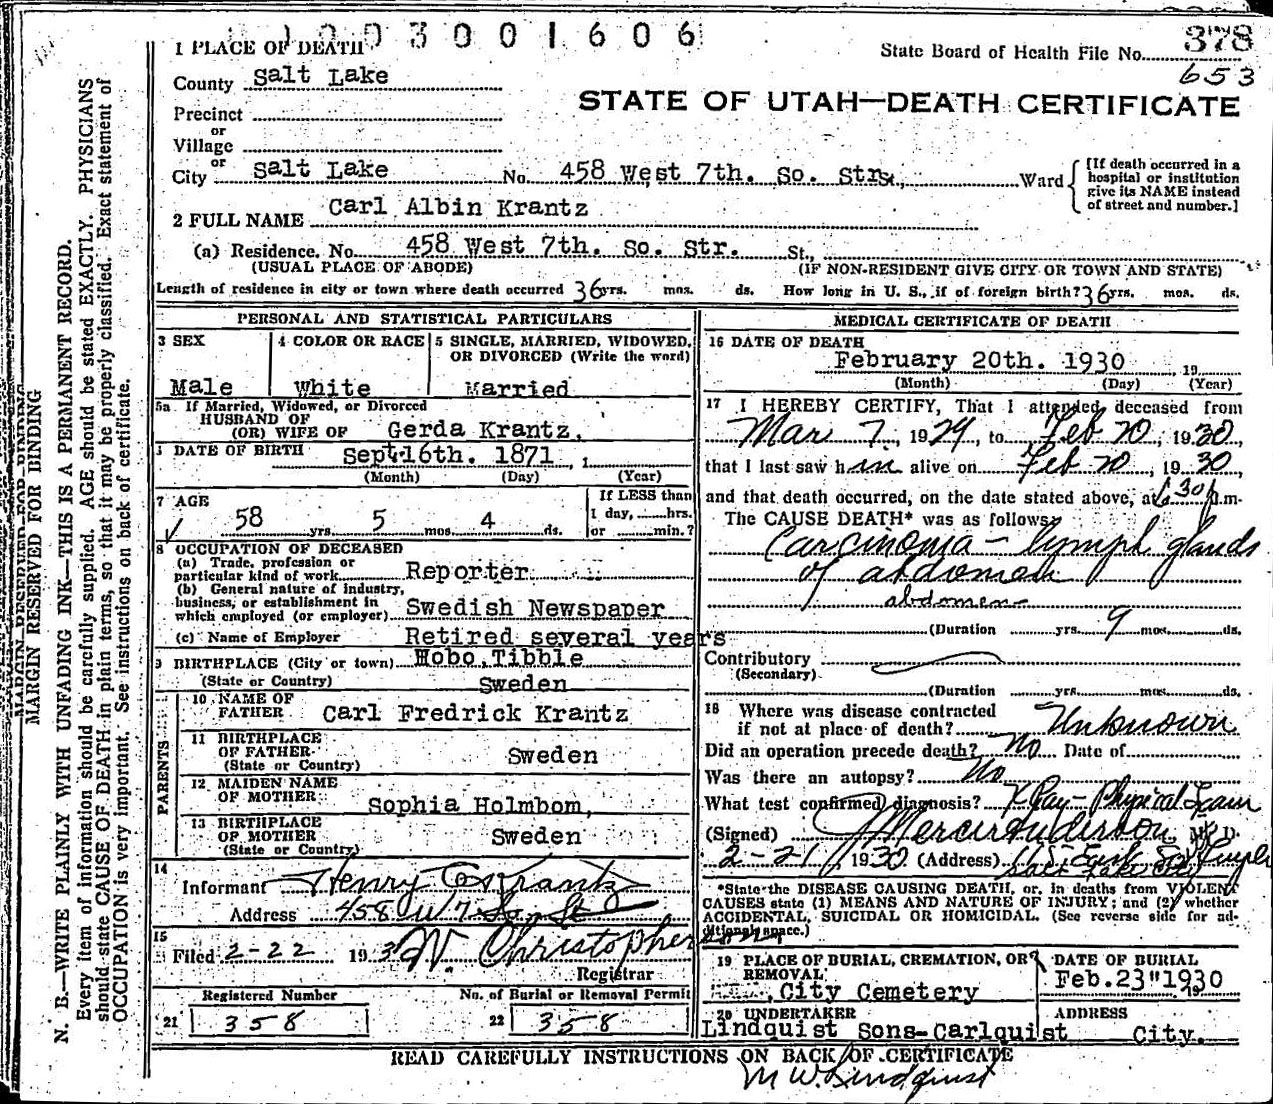 1003001606
State Board of Health File No. 378
653
STATE OF UTAH—DEATH CERTIFICATE
1 PLACE OF DEATH
County Salt Lake
Precinct
or
Village
or
City Salt Lake No. 458 West 7th. So. Str., Ward
[If death occurred in a
hospital or institution
give its NAME instead
of street and number.]
2 FULL NAME Carl Albin Krantz
(a) Residence. No. 458 West 7th. So. Str. St.,
(USUAL PLACE OF ABODE) (IF NON-RESIDENT GIVE CITY OR TOWN AND STATE)
Length of residence in city or town where death occurred 36 yrs. mos. ds. How long in U. S., if of foreign birth? 36 yrs. mos. ds.
PERSONAL AND STATISTICAL PARTICULARS
3 SEX
Male
4 COLOR OR RACE
White
5 SINGLE, MARRIED, WIDOWED,
OR DIVORCED (Write the word)
Married
5a If Married, Widowed, or Divorced
HUSBAND OF
(OR) WIFE OF Gerda Krantz.
DATE OF BIRTH Sept. 16th. 1871, 1
(Month) (Day) (Year)
7 AGE
58 yrs. 5 mos. 4 ds.
If LESS than
1 day, ......hrs.
or ......min.?
8 OCCUPATION OF DECEASED
(a) Trade, profession or
particular kind of work Reporter
(b) General nature of industry,
business, or establishment in
which employed (or employer) Swedish Newspaper
(c) Name of Employer Retired several years
9 BIRTHPLACE (City or town) Hobo, Tibble
(State or Country) Sweden
PARENTS
10 NAME OF
FATHER Carl Fredrick Krantz
11 BIRTHPLACE
OF FATHER
(State or Country) Sweden
12 MAIDEN NAME
OF MOTHER Sophia Holmbom,
13 BIRTHPLACE
OF MOTHER
(State or Country) Sweden
14
Informant Henry Krantz
Address 458 W 7 So. St
15
Filed 2-22 193 W. Christopherson
Registrar
Registered Number
21 358
No. of Burial or Removal Permit
22 358
MEDICAL CERTIFICATE OF DEATH
16 DATE OF DEATH
February 20th. 1930 19
(Month) (Day) (Year)
17 I HEREBY CERTIFY, That I attended deceased from
Mar 7, 1929, to Feb 20, 1930,
that I last saw him alive on Feb 20, 1930,
and that death occurred, on the date stated above, at 6:30 p.m.
The CAUSE DEATH* was as follows:
Carcinoma – lymph glands
of abdomen
abdomen
(Duration yrs. 9 mos. ds.
Contributory
(Secondary)
(Duration yrs. mos. ds.
18 Where was disease contracted
if not at place of death? Unknown
Did an operation precede death? No Date of
Was there an autopsy? No
What test confirmed diagnosis? X Ray – Physical Exam
(Signed) M. D.
2-21, 1930 (Address) So Temple
Salt Lake City
*State the DISEASE CAUSING DEATH, or, in deaths from VIOLENT
CAUSES state (1) MEANS AND NATURE OF INJURY; and (2) whether
ACCIDENTAL, SUICIDAL OR HOMICIDAL. (See reverse side for ad-
ditional space.)
19 PLACE OF BURIAL, CREMATION, OR
REMOVAL
City Cemetery
DATE OF BURIAL
Feb. 23" 1930
19
20 UNDERTAKER
Lindquist Sons-Carlquist
ADDRESS
City.
READ CAREFULLY INSTRUCTIONS ON BACK OF CERTIFICATE
M W Lindquist
MARGIN RESERVED FOR BINDING
N. B.—WRITE PLAINLY WITH UNFADING INK—THIS IS A PERMANENT RECORD.
Every item of information should be carefully supplied. AGE should be stated EXACTLY. PHYSICIANS
should state CAUSE OF DEATH in plain terms, so that it may be properly classified. Exact statement of
OCCUPATION is very important. See instructions on back of certificate.